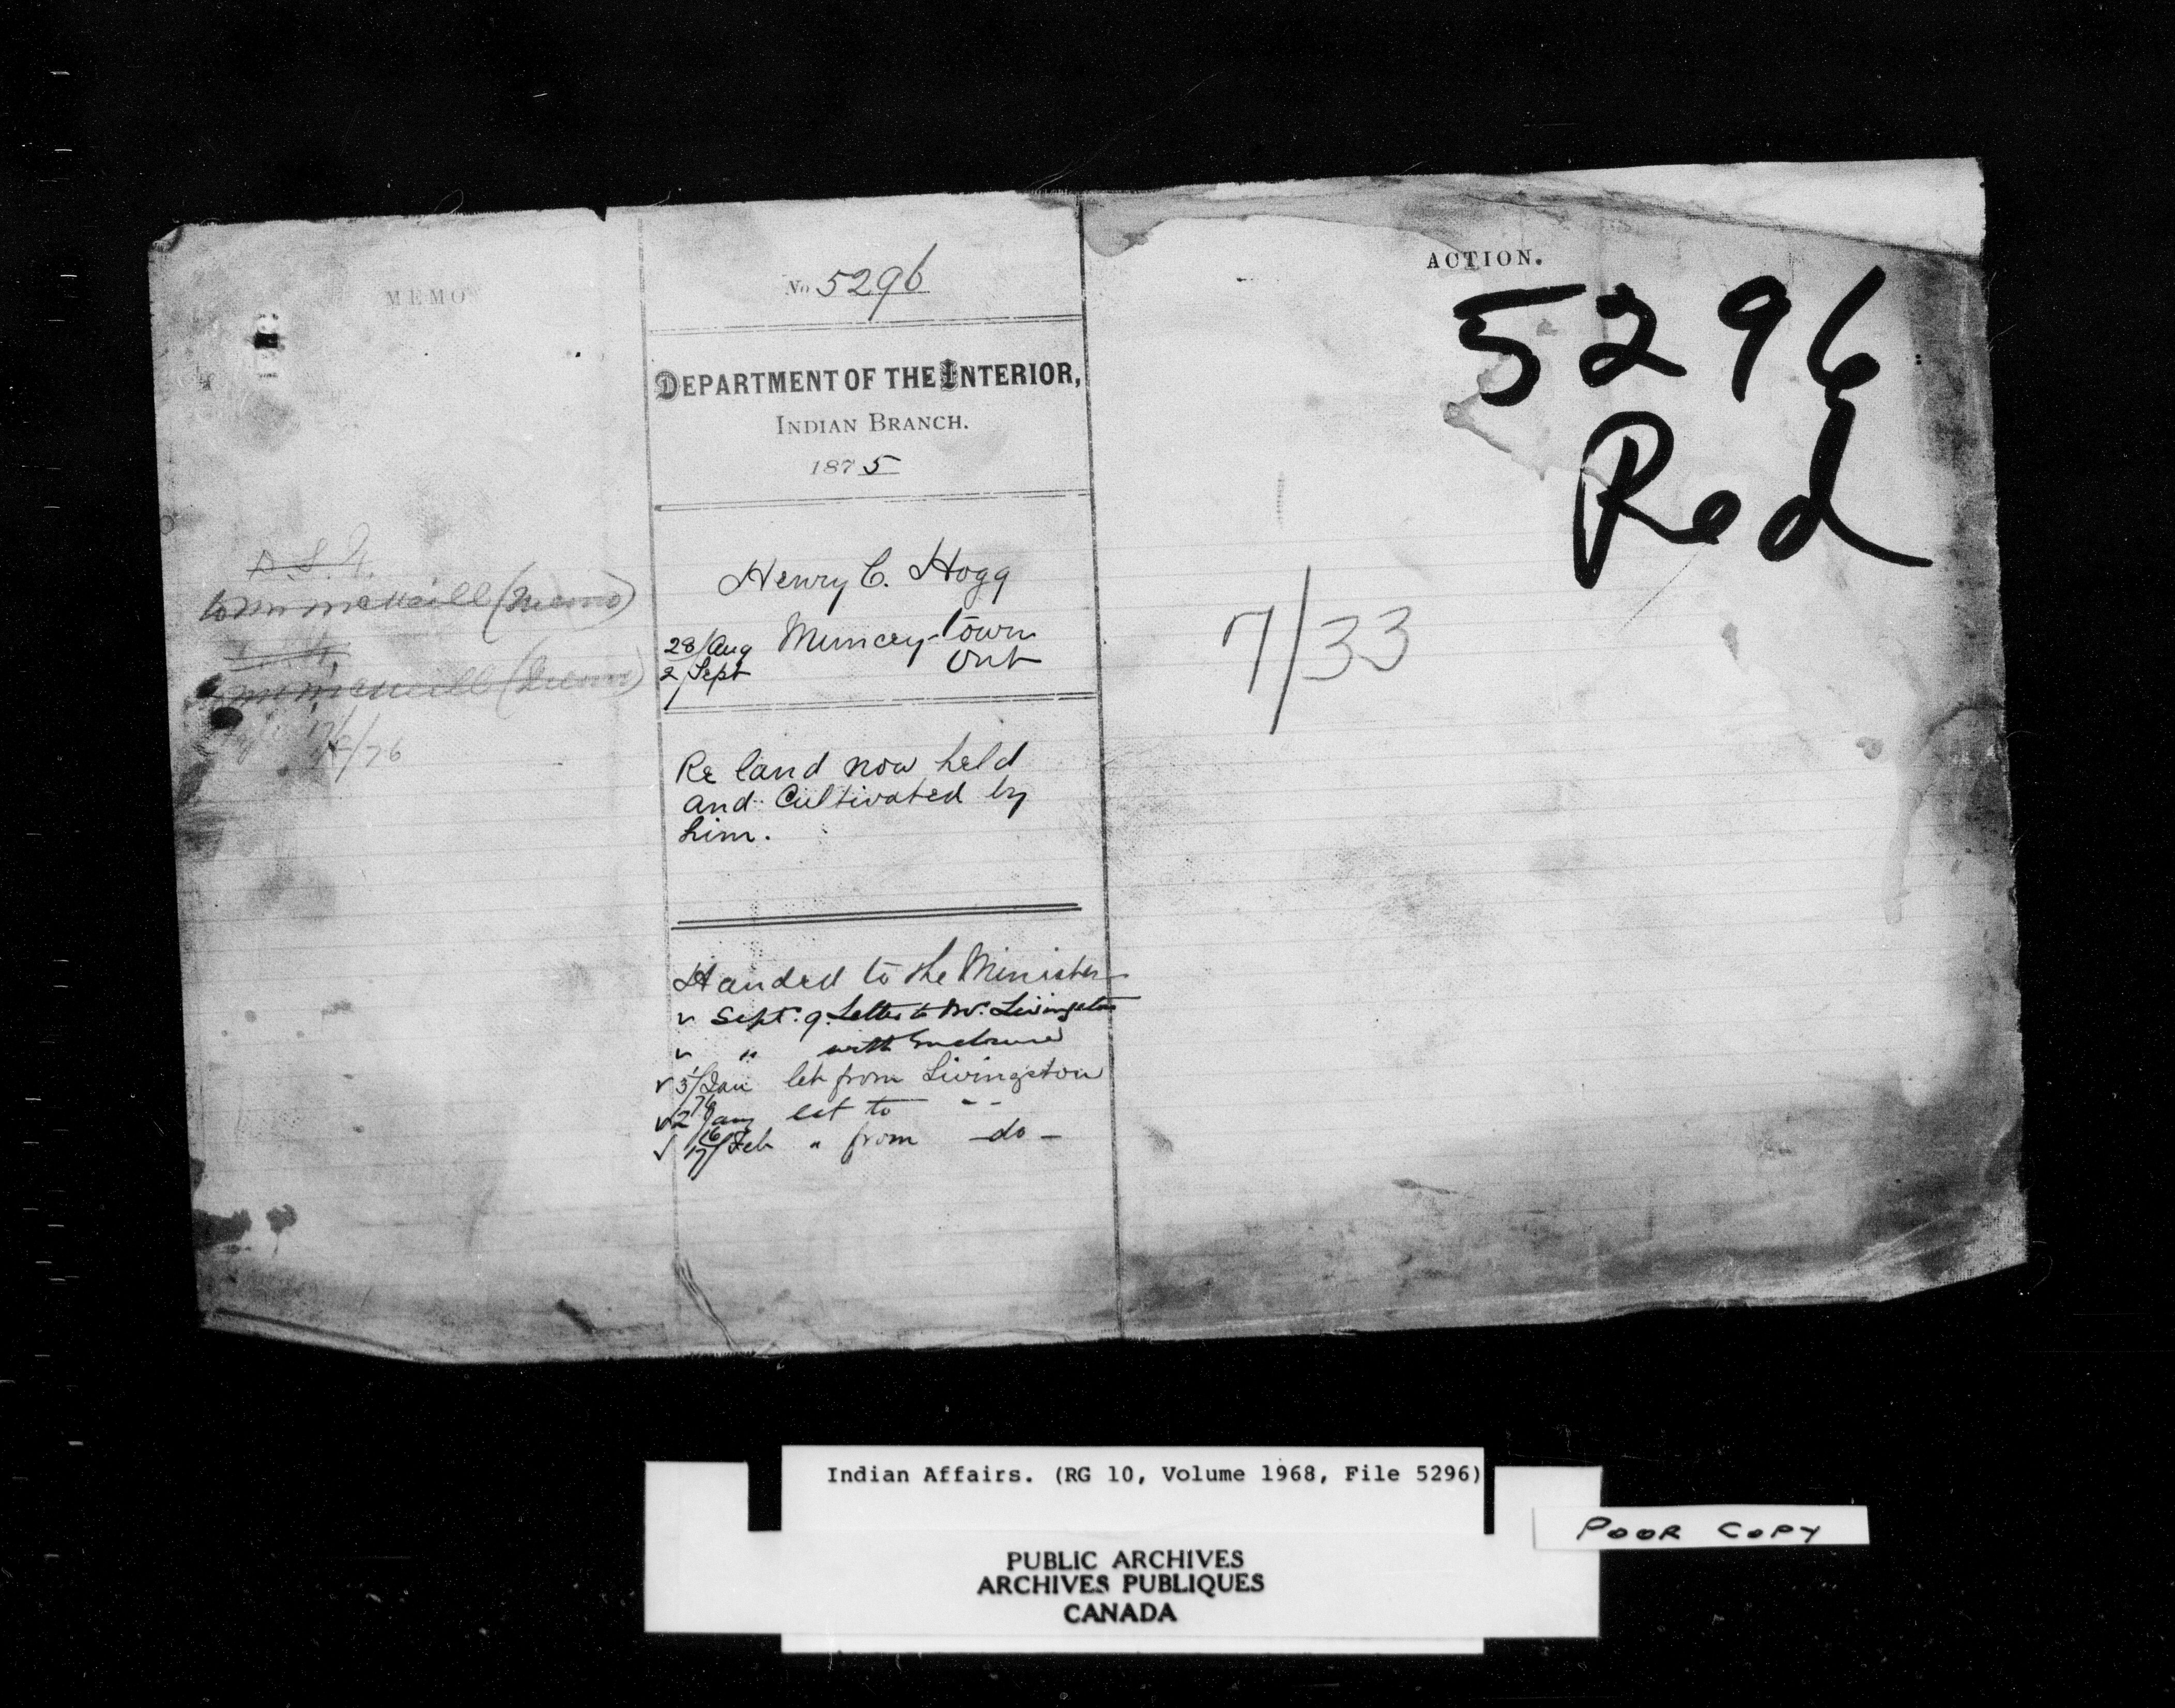 MEMO
to Mr McNeill (Memo)
Mr McNeill (Memo)
/76
No 5296
DEPARTMENT OF THE INTERIOR,
INDIAN BRANCH.
1875
Henry C. Hogg
28/Aug Muncey-town
2/Sept Ont
Re land now held
and Cultivated by
him.
Handed to the Minister
✓ Sept. 9. Letter to Mr. Livingston
✓ " with Enclosure
✓ 3/Jan let from Livingston
76
✓ 2 Jany let to - -
✓ 17/Feb " from - do -
ACTION.
5296
Red
7/33
Indian Affairs. (RG 10, Volume 1968, File 5296)
PUBLIC ARCHIVES
ARCHIVES PUBLIQUES
CANADA
POOR COPY